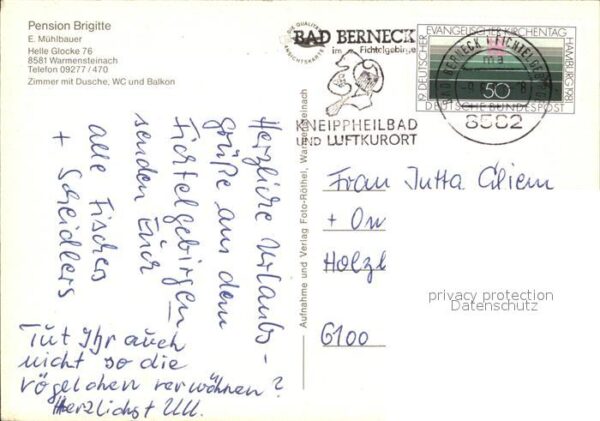 Pension Brigitte
E. Mühlbauer
Helle Glocke 76
8581 Warmensteinach
Telefon 09277/470
Zimmer mit Dusche, WC und Balkon
DIE QUALITÄTS
ANSICHTSKARTE
BAD BERNECK
im Fichtelgebirge
KNEIPPHEILBAD
UND LUFTKURORT
19. DEUTSCHER EVANGELISCHER KIRCHENTAG HAMBURG 1981
50
DEUTSCHE BUNDESPOST
BAD BERNECK I FICHTELGEBIRGE
ma
8582
Herzliche Urlaubs-
grüße aus dem
Fichtelgebirgen
senden Euch
alle Fischer
+ Scheidlers
Tut Ihr auch
nicht so die
vögelchen verwöhnen?
Herzlichst
Aufnahme und Verlag Foto-Röthel, Warmensteinach
Frau Jutta
+
Holzl
6100
privacy protection
Datenschutz